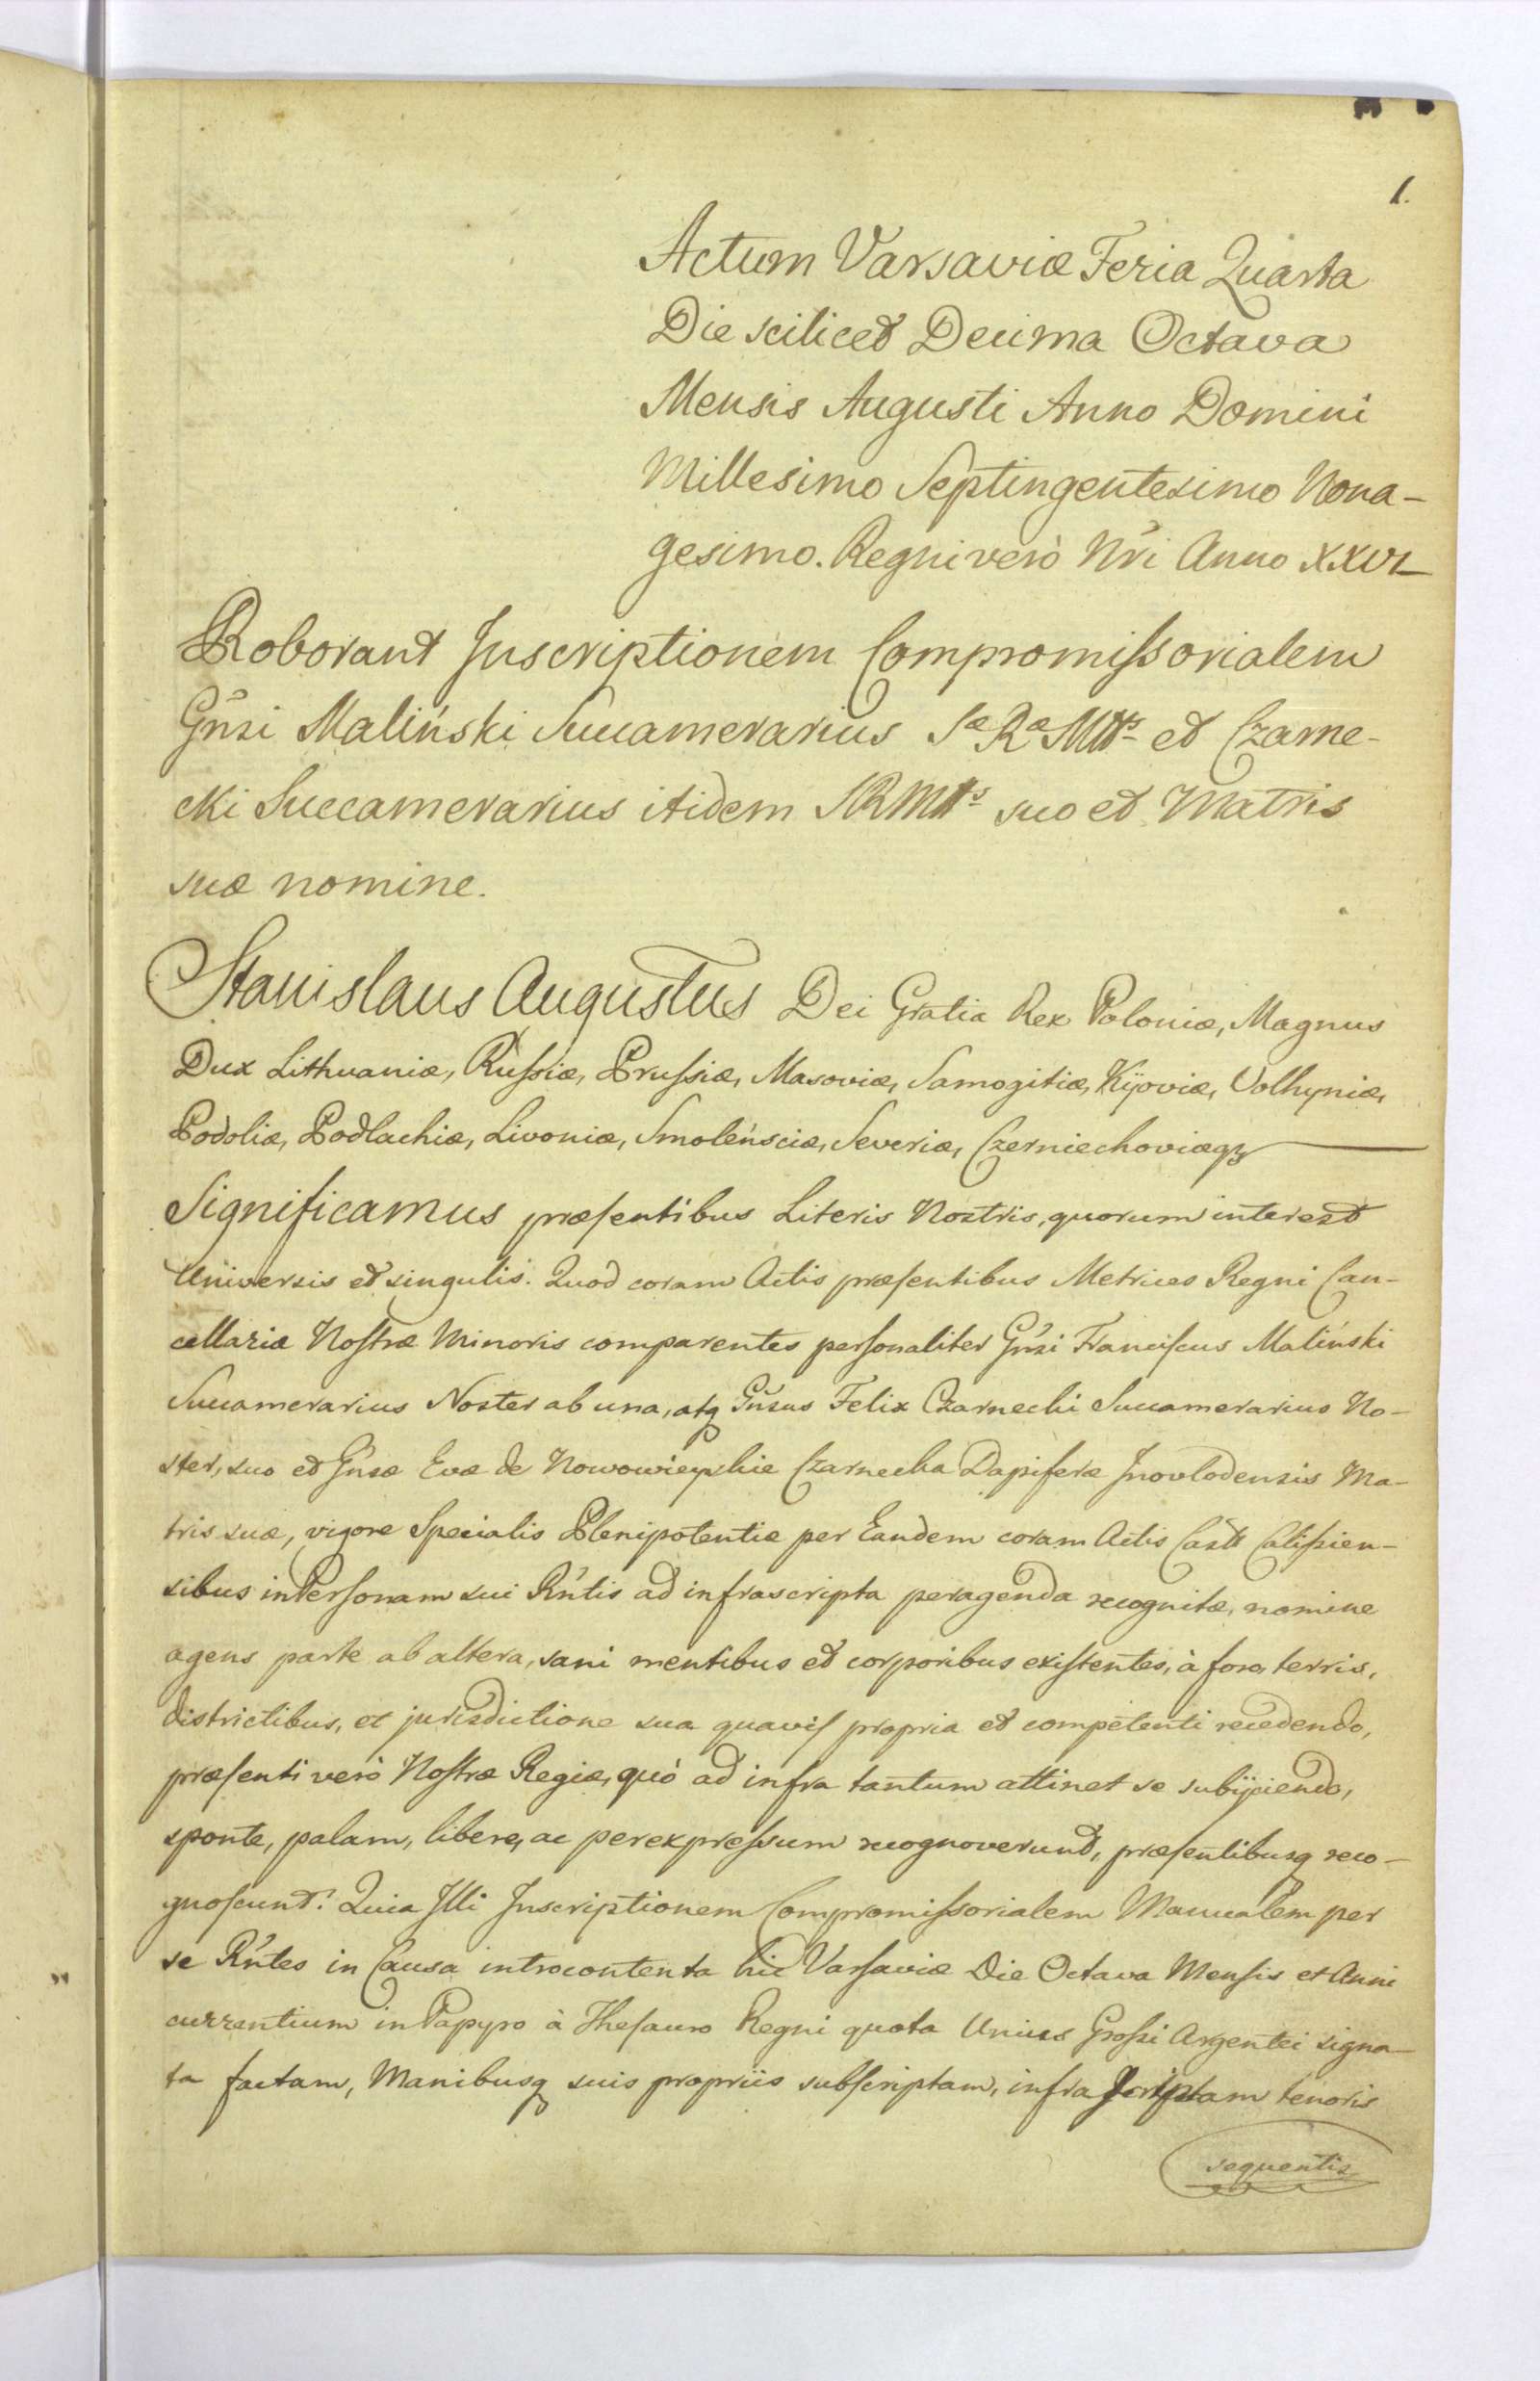 1.
Actum Varsaviæ Feria Quarta
Die scilicet Decima Octava
Mensis Augusti Anno Domini
Millesimo Septingentesimo Nona-
gesimo. Regni verò Nri Anno XXVI
Roborant Inscriptionem Compromissorialem
Gnsi Maliński Succamerarius Sæ Ræ Mttis et Czarne-
cki Succamerarius itidem SRMttis suo et Matris
suæ nomine.
Stanislaus Augustus Dei Gratia Rex Poloniæ, Magnus
Dux Lithuaniæ, Russiæ, Prussiæ, Masoviæ, Samogitiæ, Kijoviæ, Volhyniæ,
Podoliæ, Podlachiæ, Livoniæ, Smolensciæ, Severiæ, Czerniechoviæq
Significamus præsentibus Literis Nostris, quorum interest
Universis et singulis. Quod coram Actis præsentibus Metrices Regni Can-
cellariæ Nostræ Minoris comparentes personaliter Gnsi Franciscus Maliński
Succamerarius Noster ab una, atq Gnsus Felix Czarnecki Succamerarius No-
ster, suo et Gnsæ Evæ de Nowowieyskie Czarnecka Dapiferæ Inovlodensis Ma-
tris suæ, vigore Specialis Plenipotentiæ per Eandem coram Actis Castr Calissien-
sibus in Personam sui Rntis ad infrascripta peragenda recognitæ, nomine
agens parte ab altera, sani mentibus et corporibus existentes, à foro, terris,
districtibus, et jurisdictione sua quavis propria et competenti recedendo,
præsenti verò Nostræ Regiæ, quò ad infra tantum attinet se subijciendo,
sponte, palam, libere, ac per expressum recognoverunt, præsentibusq reco-
gnoscunt. Quia Illi Inscriptionem Compromissorialem Manualem per
se Rntes in Causa introcontenta hic Varsaviæ Die Octava Mensis et Anni
currentium in Papyro à Thesauro Regni quota Unius Grossi Argentei signa-
ta factam, Manibusq suis propriis subscriptam, infra scriptam tenoris
sequentis